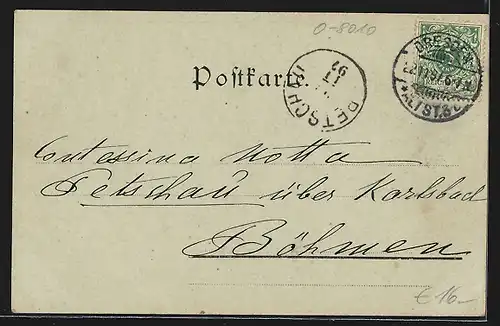 O-8010
Postkarte.
PETSCHAU
97
DRESDEN
ALTST.
Contessina Notta
Petschau über Karlsbad
Böhmen
€16-